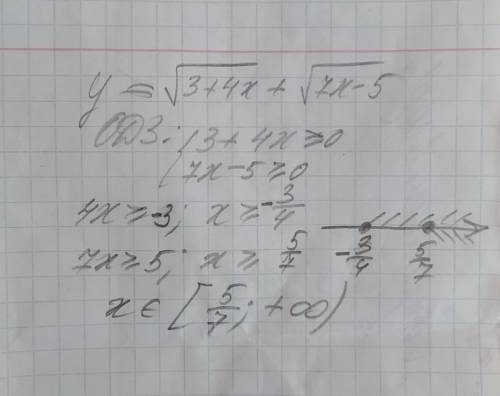 y = √(3+4x) + √(7x-5)
ОДЗ: { 3 + 4x ≥ 0
{ 7x - 5 ≥ 0
4x ≥ -3; x ≥ -3/4
7x ≥ 5; x ≥ 5/7
-3/4 5/7
x ∈ [5/7; +∞)